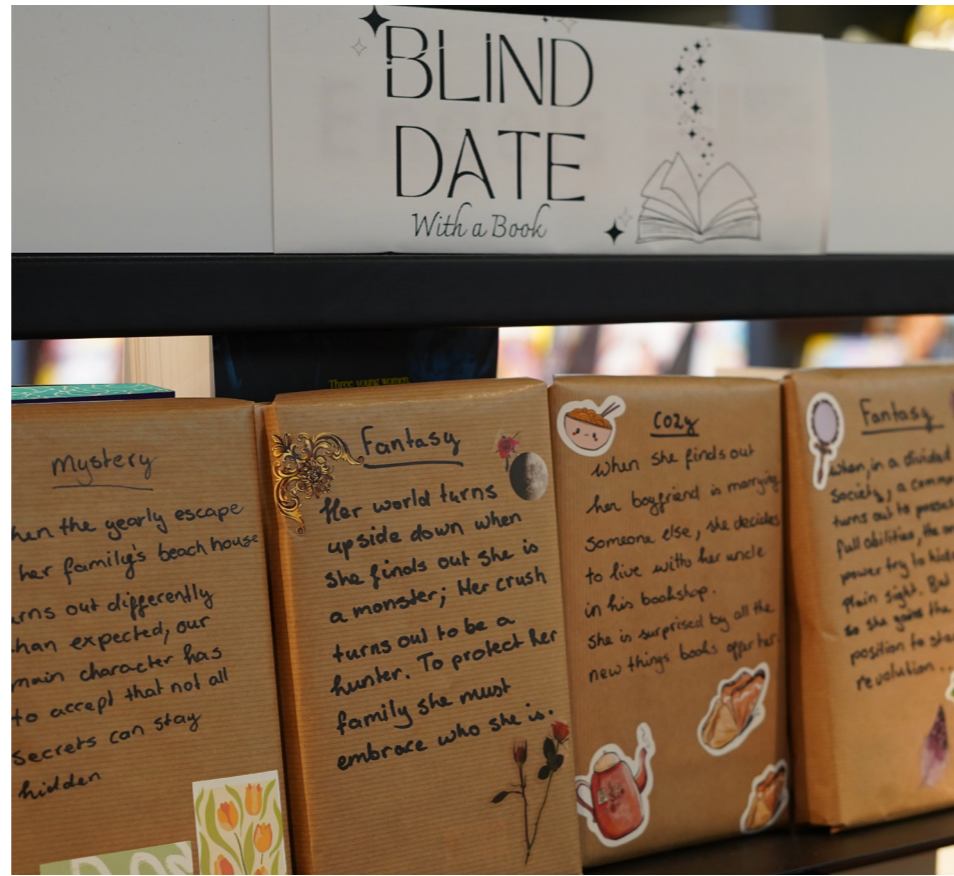 BLIND
DATE
With a Book
Three young women
Mystery
hen the yearly escape
her family's beach house
rns out differently
han expected, our
main character has
to accept that not all
secrets can stay
hidden
Fantasy
Her world turns
upside down when
she finds out she is
a monster; Her crush
turns out to be a
hunter. To protect her
family she must
embrace who she is.
Cozy
When she finds out
her boyfriend is marrying
someone else, she decides
to live with her uncle
in his bookshop.
She is surprised by all the
new things books offer her.
Fantasy
When, in a divided
society, a comm
turns out to posses
full abilities, the
power try to hide
plain sight. But
so she gains the
position to star
revolution...